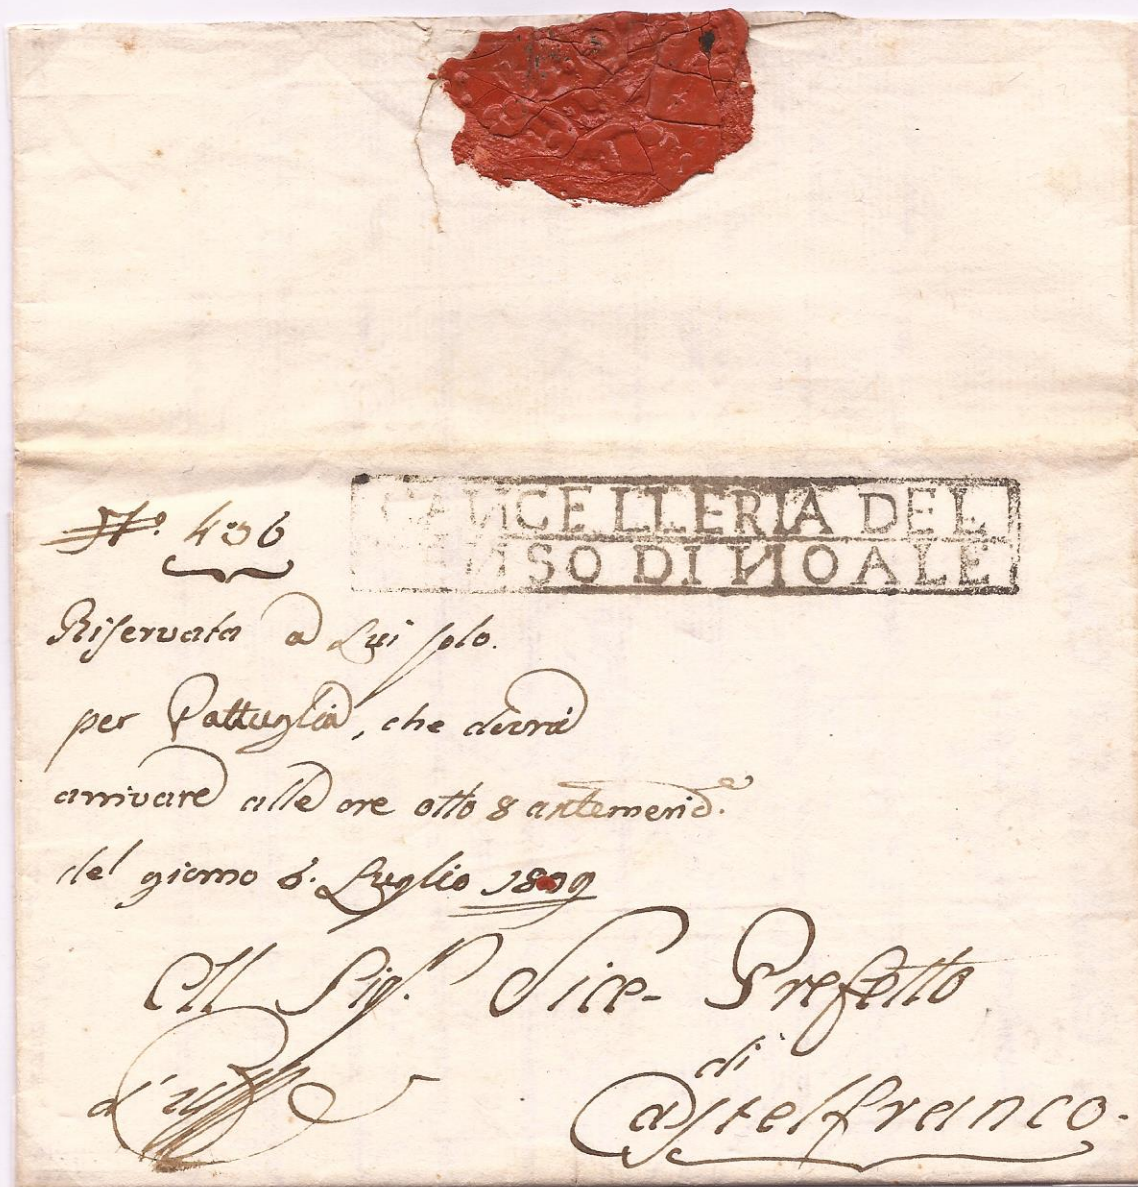 CANCELLERIA DEL
CENSO DI NOALE
N.° 436
Riservata a Lui solo.
per Pattuglia, che dovrà
arrivare alle ore otto 8 antemerid.e
del giorno 6. Luglio 1809
All Sig.r Vice-Prefetto
di
d'Uff.
Castelfranco.